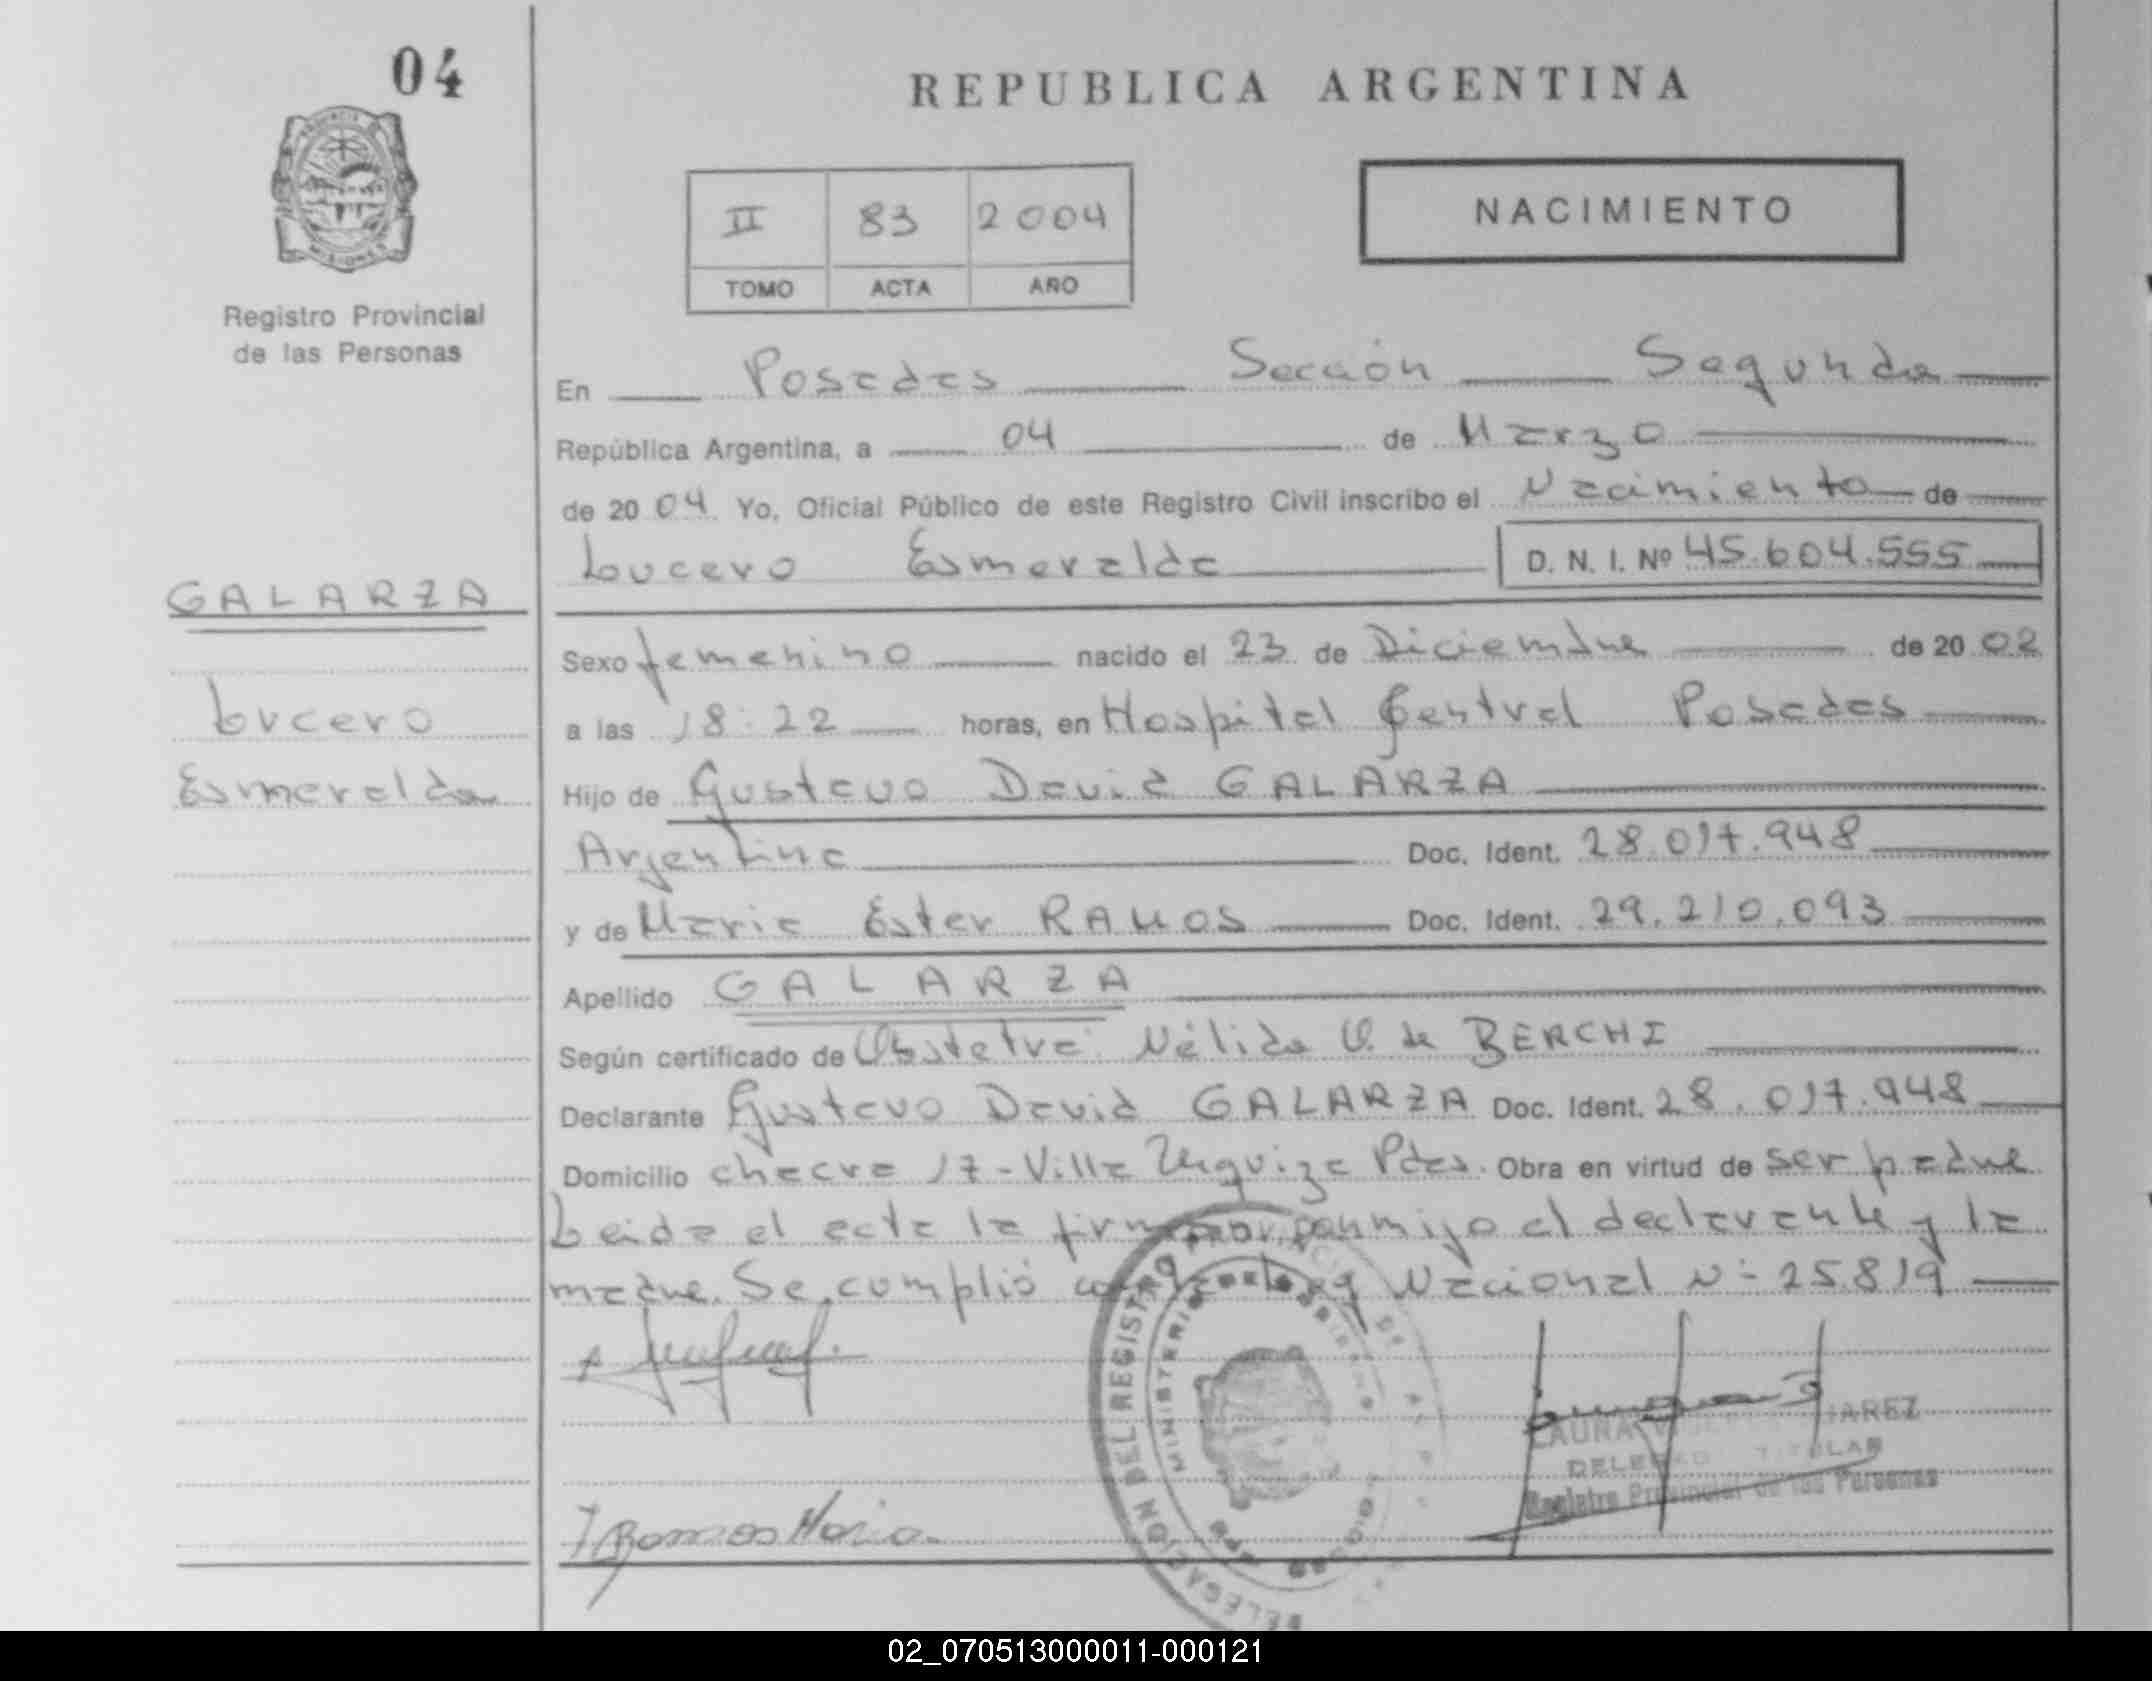 04
REPUBLICA ARGENTINA
II 83 2004
TOMO ACTA AÑO
NACIMIENTO
Registro Provincial
de las Personas
En Posadas Sección Segunda
República Argentina, a 04 de Marzo
de 2004 Yo, Oficial Público de este Registro Civil inscribo el Nacimiento de
Lucero Esmeralda D. N. I. Nº 45.604.555
GALARZA
Lucero
Esmeralda
Sexo femenino nacido el 23 de Diciembre de 2002
a las 18:22 horas, en Hospital Central Posadas
Hijo de Gustavo David GALARZA
Argentina Doc. Ident. 28.017.948
y de Maria Ester RAMOS Doc. Ident. 29.210.093
Apellido GALARZA
Según certificado de Obstetra Nélida de BERCHI
Declarante Gustavo David GALARZA Doc. Ident. 28.017.948
Domicilio chacra 17-Villa Urquiza Pdas. Obra en virtud de ser padre
Leida el acta la firman conmigo el declarante y la
madre. Se cumplió con Ley Nacional Nº 25.819
DELEGACION DEL REGISTRO PROVINCIAL DE
MINISTERIO DE GOBIERNO
LAURA
TITULAR
Registro Provincial de las Personas
Ramos Maria
02_070513000011-000121